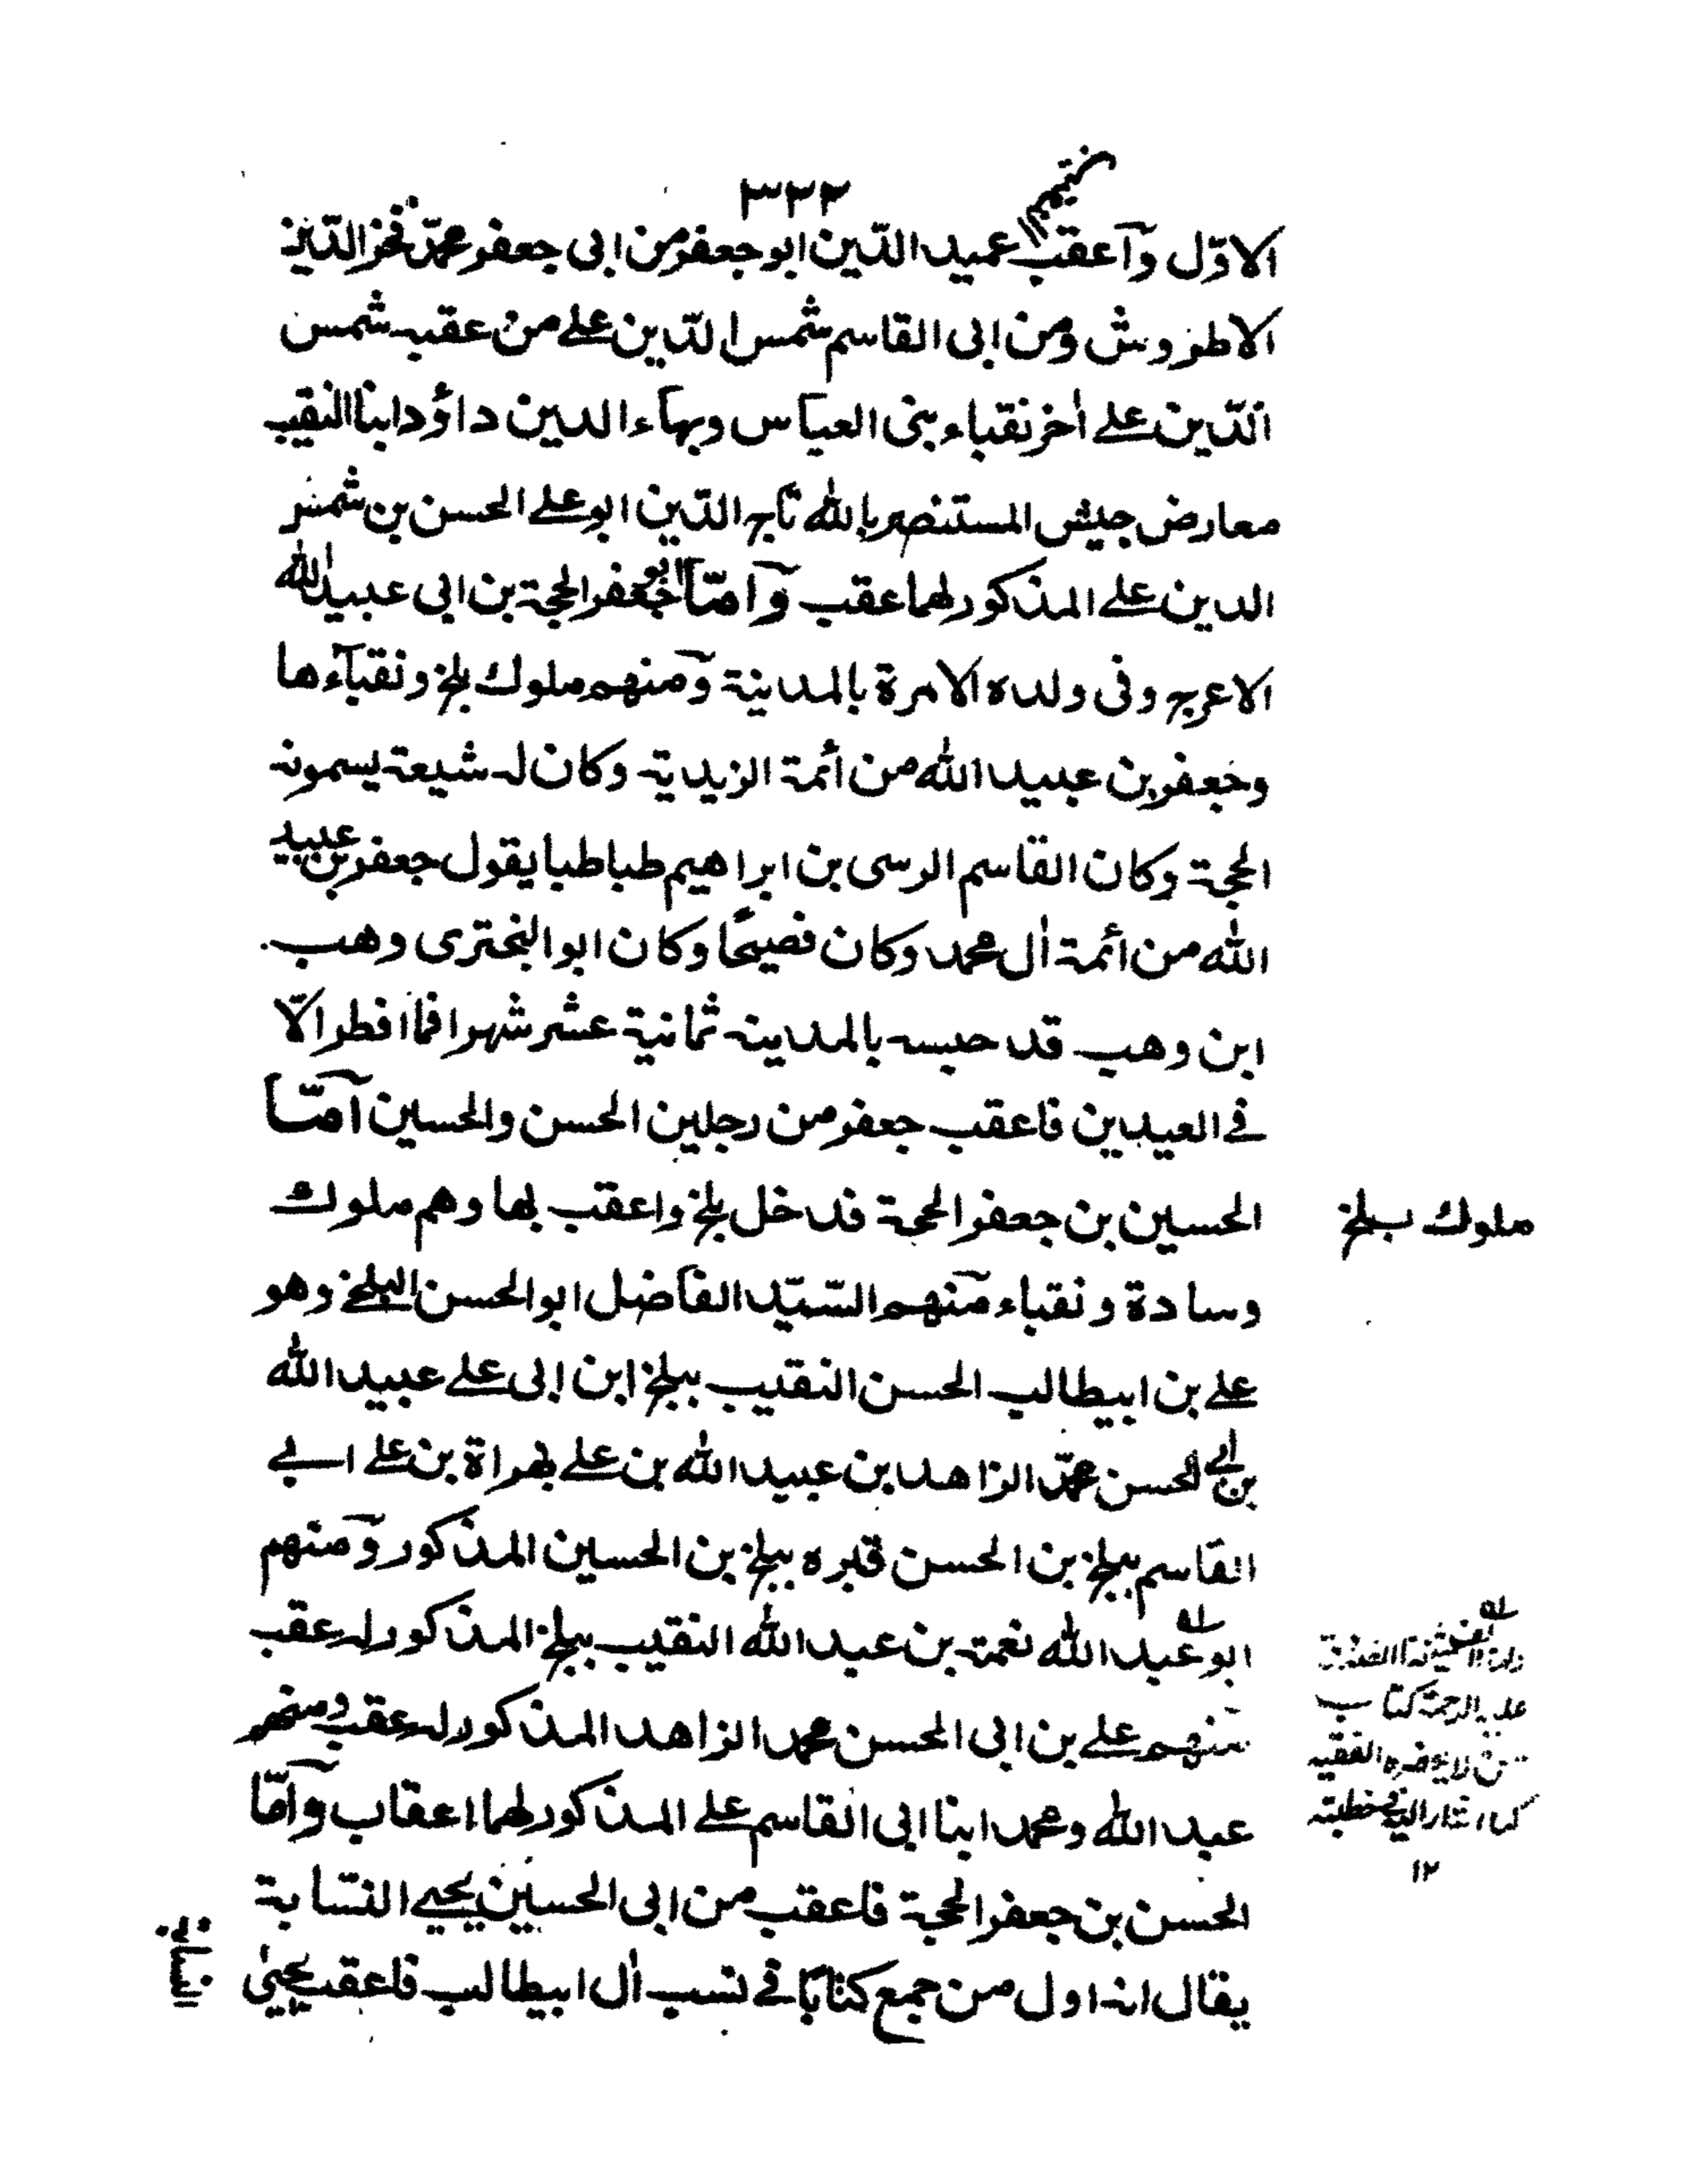 ٣٢٢
الاوّل وآعقب عميد الدّين ابو جعفر من ابى جعفر محمّد فخر الدّين
الاطروش ومن ابى القاسم شمس الدّين على من عقبه شمس
الدّين على اٰخر نقباء بنى العباس وبهاء الدين داؤد ابنا النقيب
معارض جيش المستنصر بالله تاج الدّين ابو على الحسن بن شمس
الدين على المذكور لهما عقب وآمّا ابو جعفر الحجة بن ابى عبيد الله
الاعرج وفى ولده الامرة بالمدينة ومنهم ملوك بلخ ونقباءها
وجعفر بن عبيد الله من أئمة الزيدية وكان له شيعة يسمونه
الحجة وكان القاسم الرسى بن ابراهيم طباطبا يقول جعفر بن عبيد
الله من أئمة اٰل محمد وكان فصيحًا وكان ابو البخترى وهب
ابن وهب قد حبسه بالمدينه ثمانية عشر شهرا فما افطر الّا
فى العيدين فاعقب جعفر من رجلين الحسن والحسين آمّا
الحسين بن جعفر الحجة فدخل بلخ واعقب بها وهم ملوك
ملوك بلخ
وسادة ونقباء منهم السّيّد الفاضل ابو الحسن البلخى وهو
على بن ابيطالب الحسن النقيب ببلخ ابن ابى على عبيد الله
بن ابى الحسن محمّد الزاهد بن عبيد الله بن على بهراة بن على ابى
القاسم ببلخ بن الحسن قبره ببلخ بن الحسين المذكور ومنهم
ابو عبد الله نعمة بن عبد الله النقيب ببلخ المذكور له عقب
منهم على بن ابى الحسن محمد الزاهد المذكور له عقب ومنهم
عبد الله ومحمد ابنا ابى القاسم على المذكور لهما اعقاب وآمّا
الحسن بن جعفر الحجة فاعقب من ابى الحسين يحيى النسّابة
يقال انه اول من جمع كتابًا فى نسب اٰل ابيطالب فاعقب يحيىٰ
عليه الرحمة كتاب
من لا يحضره الفقيه
١٢